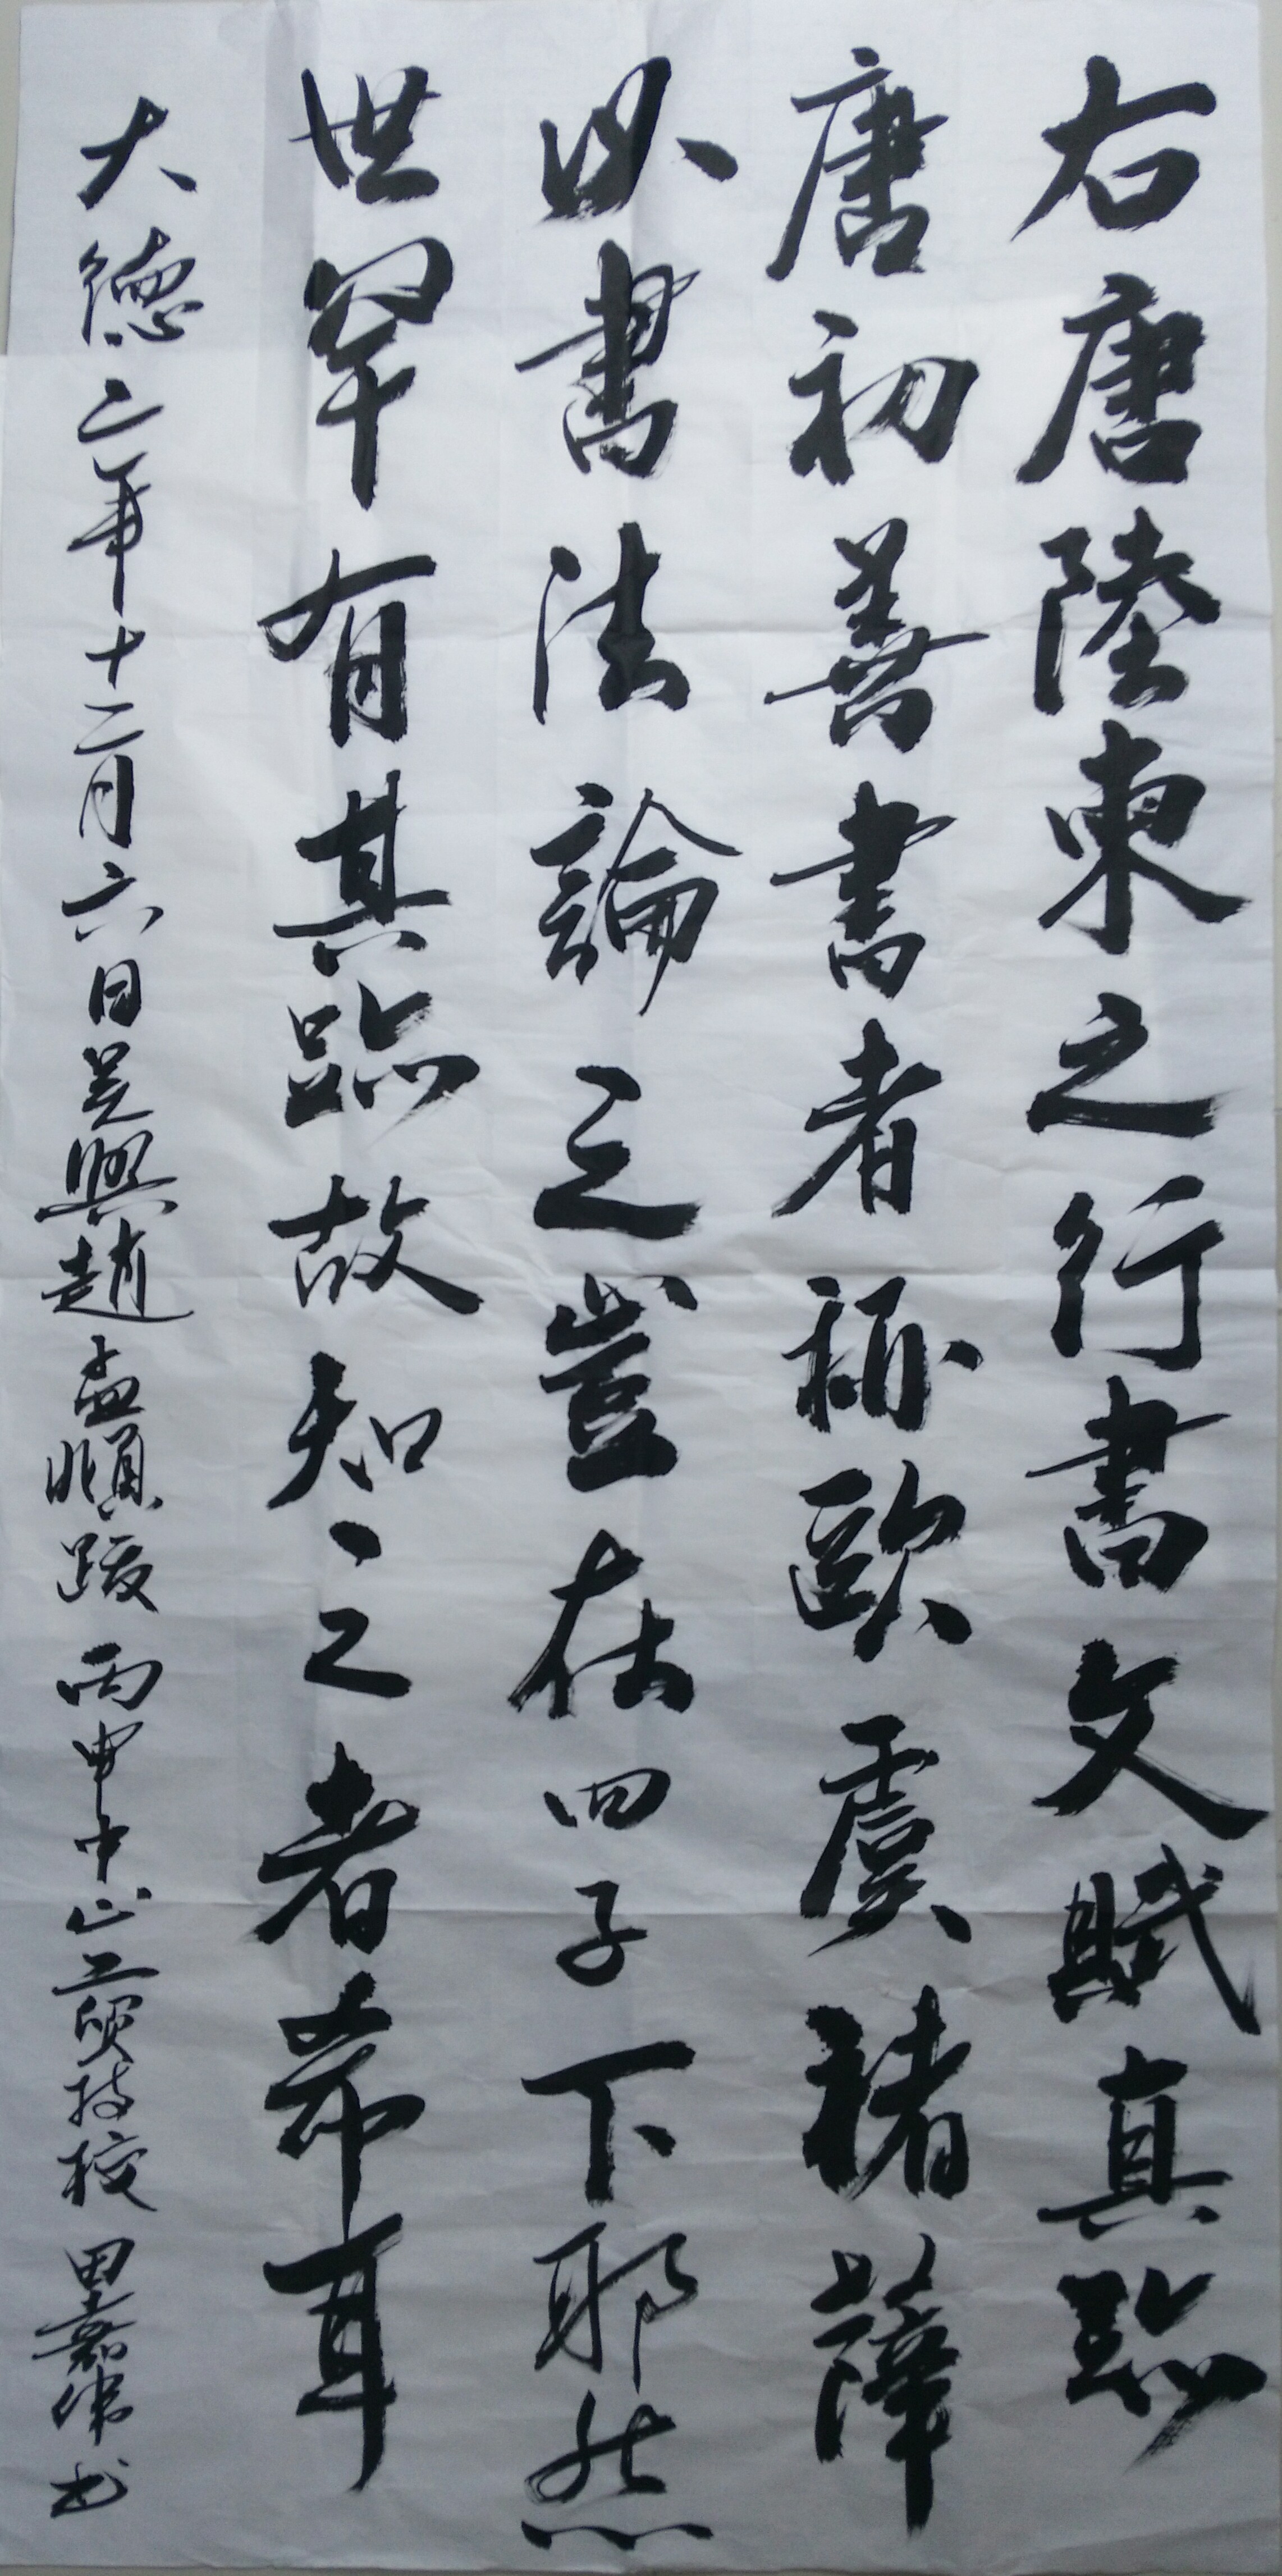 右唐陸柬之行書文賦真跡
唐初善書者稱歐虞褚薛
以書法論之豈在四子下耶然
世罕有其跡故知之者希耳
大德二年十二月六日吴興趙孟頫跋 丙申中山工貿技校 田嘉偉书